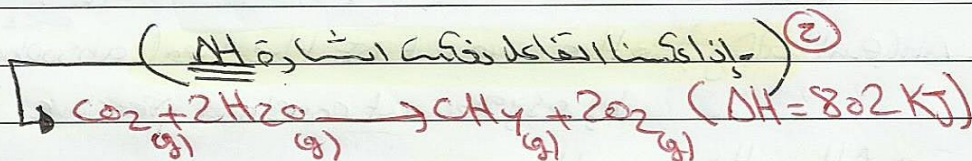 ② (- إذا عكسنا التفاعل نعكس اشارة ΔH)
CO2(g) + 2H2O(g) → CH4(g) + 2O2(g) (ΔH = 802 KJ)